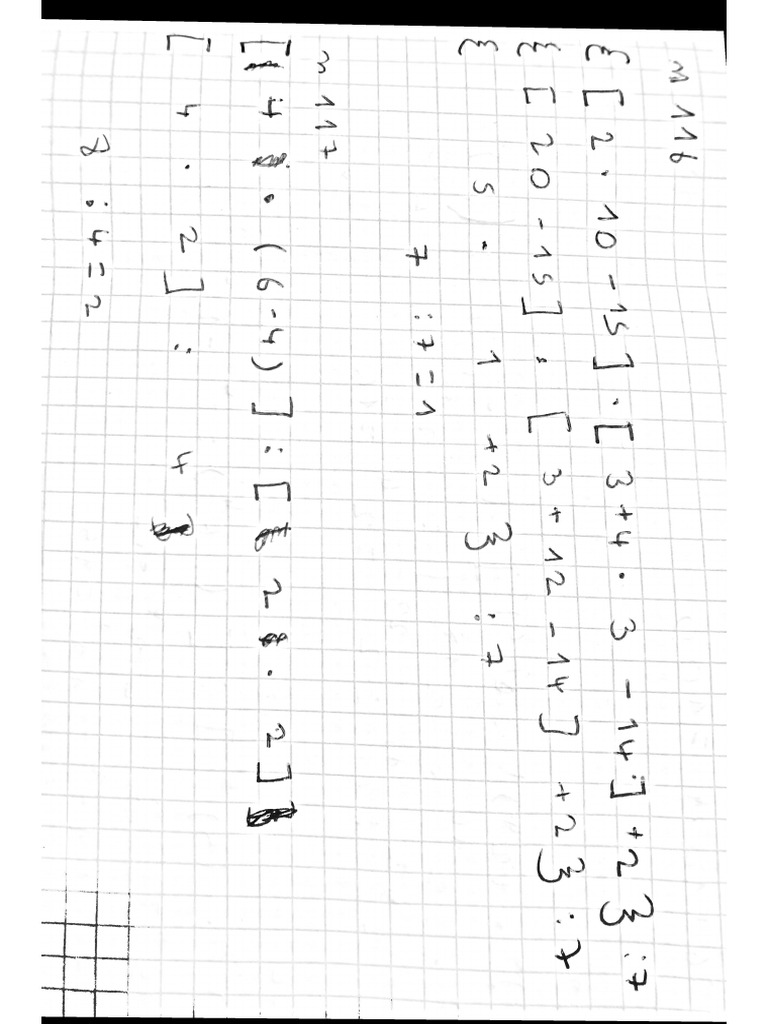 n 116
{ [ 2 · 10 - 15 ] · [ 3 + 4 · 3 - 14 ] + 2 } : 7
{ [ 20 - 15 ] · [ 3 + 12 - 14 ] + 2 } : 7
{ 5 · 1 + 2 } : 7
7 : 7 = 1
n 117
[ 4 · ( 6 - 4 ) ] : [ 2 · 2 ]
[ 4 · 2 ] : 4
8 : 4 = 2